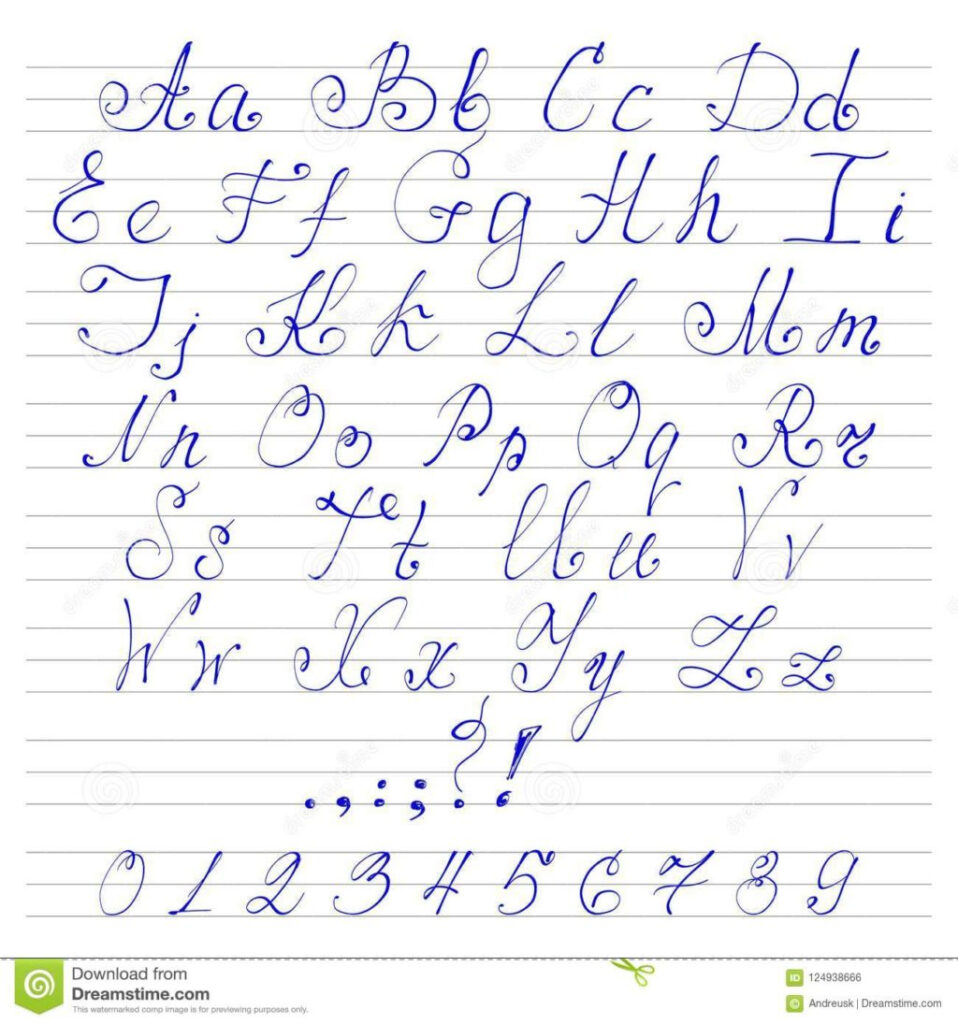 Aa Bb Cc Dd
Ee Ff Gg Hh Ii
Jj Kk Ll Mm
Nn Oo Pp Qq Rr
Ss Tt Uu Vv
Ww Xx Yy Zz
. , : ; ? !
0 1 2 3 4 5 6 7 8 9
Download from
Dreamstime.com
This watermarked comp image is for previewing purposes only.
ID 124938666
© Andreusk | Dreamstime.com